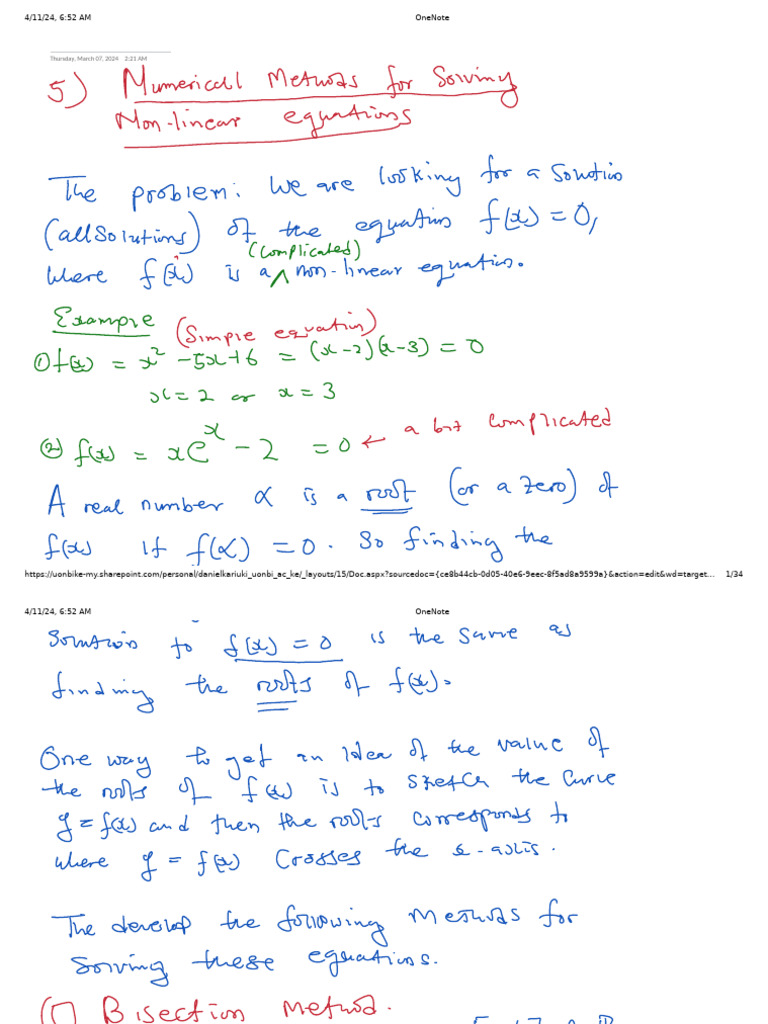 4/11/24, 6:52 AM OneNote
Thursday, March 07, 2024 2:21 AM
5) Numerical Methods for Solving
Non-linear equations
The problem: We are looking for a solution
(all solutions) of the equation f(x) = 0,
(complicated)
where f(x) is a ∧ non-linear equation.
Example (Simple equation)
① f(x) = x² - 5x + 6 = (x-2)(x-3) = 0
x = 2 or x = 3
② f(x) = xeˣ - 2 = 0 ← a bit complicated
A real number α is a root (or a zero) of
f(x) if f(α) = 0. So finding the
https://uonbike-my.sharepoint.com/personal/danielkariuki_uonbi_ac_ke/_layouts/15/Doc.aspx?sourcedoc={ce8b44cb-0d05-40e6-9eec-8f5ad8a9599a}&action=edit&wd=target... 1/34
4/11/24, 6:52 AM OneNote
Solution to f(x) = 0 is the same as
finding the roots of f(x).
One way to get an idea of the value of
the roots of f(x) is to sketch the curve
y = f(x) and then the roots corresponds to
where y = f(x) crosses the x-axis.
The develop the following methods for
solving these equations.
(1) Bisection method.